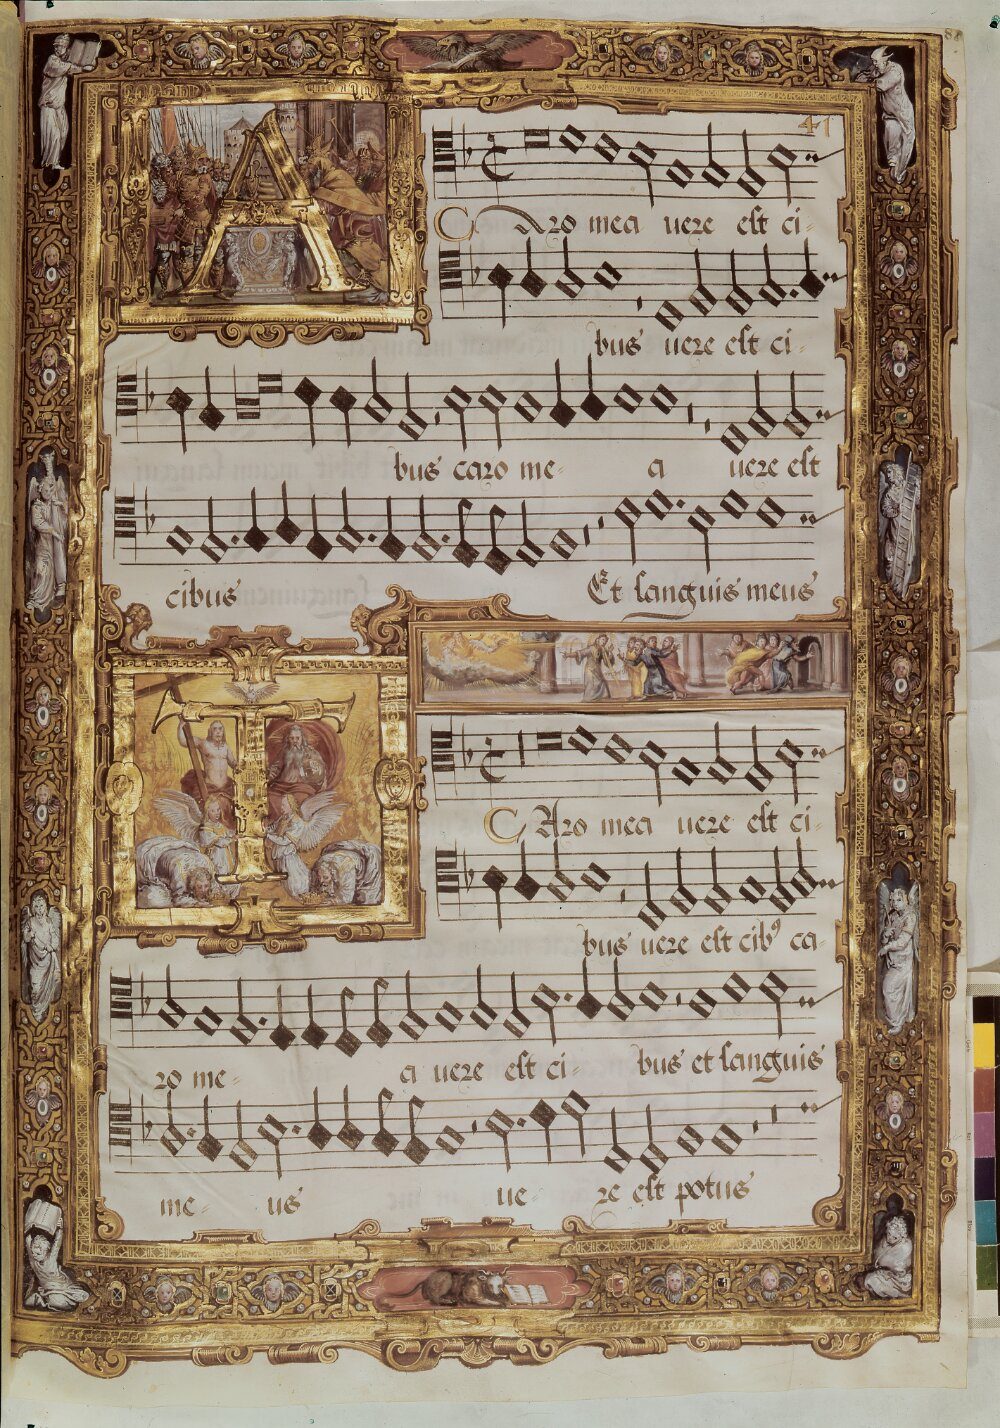 41
A
Caro mea uere est ci-
bus uere est ci-
bus caro me- a uere est
cibus Et sanguis meus
T
Caro mea uere est ci-
bus uere est cib9 ca-
ro me- a uere est ci- bus et sanguis
me- us ue- re est potus